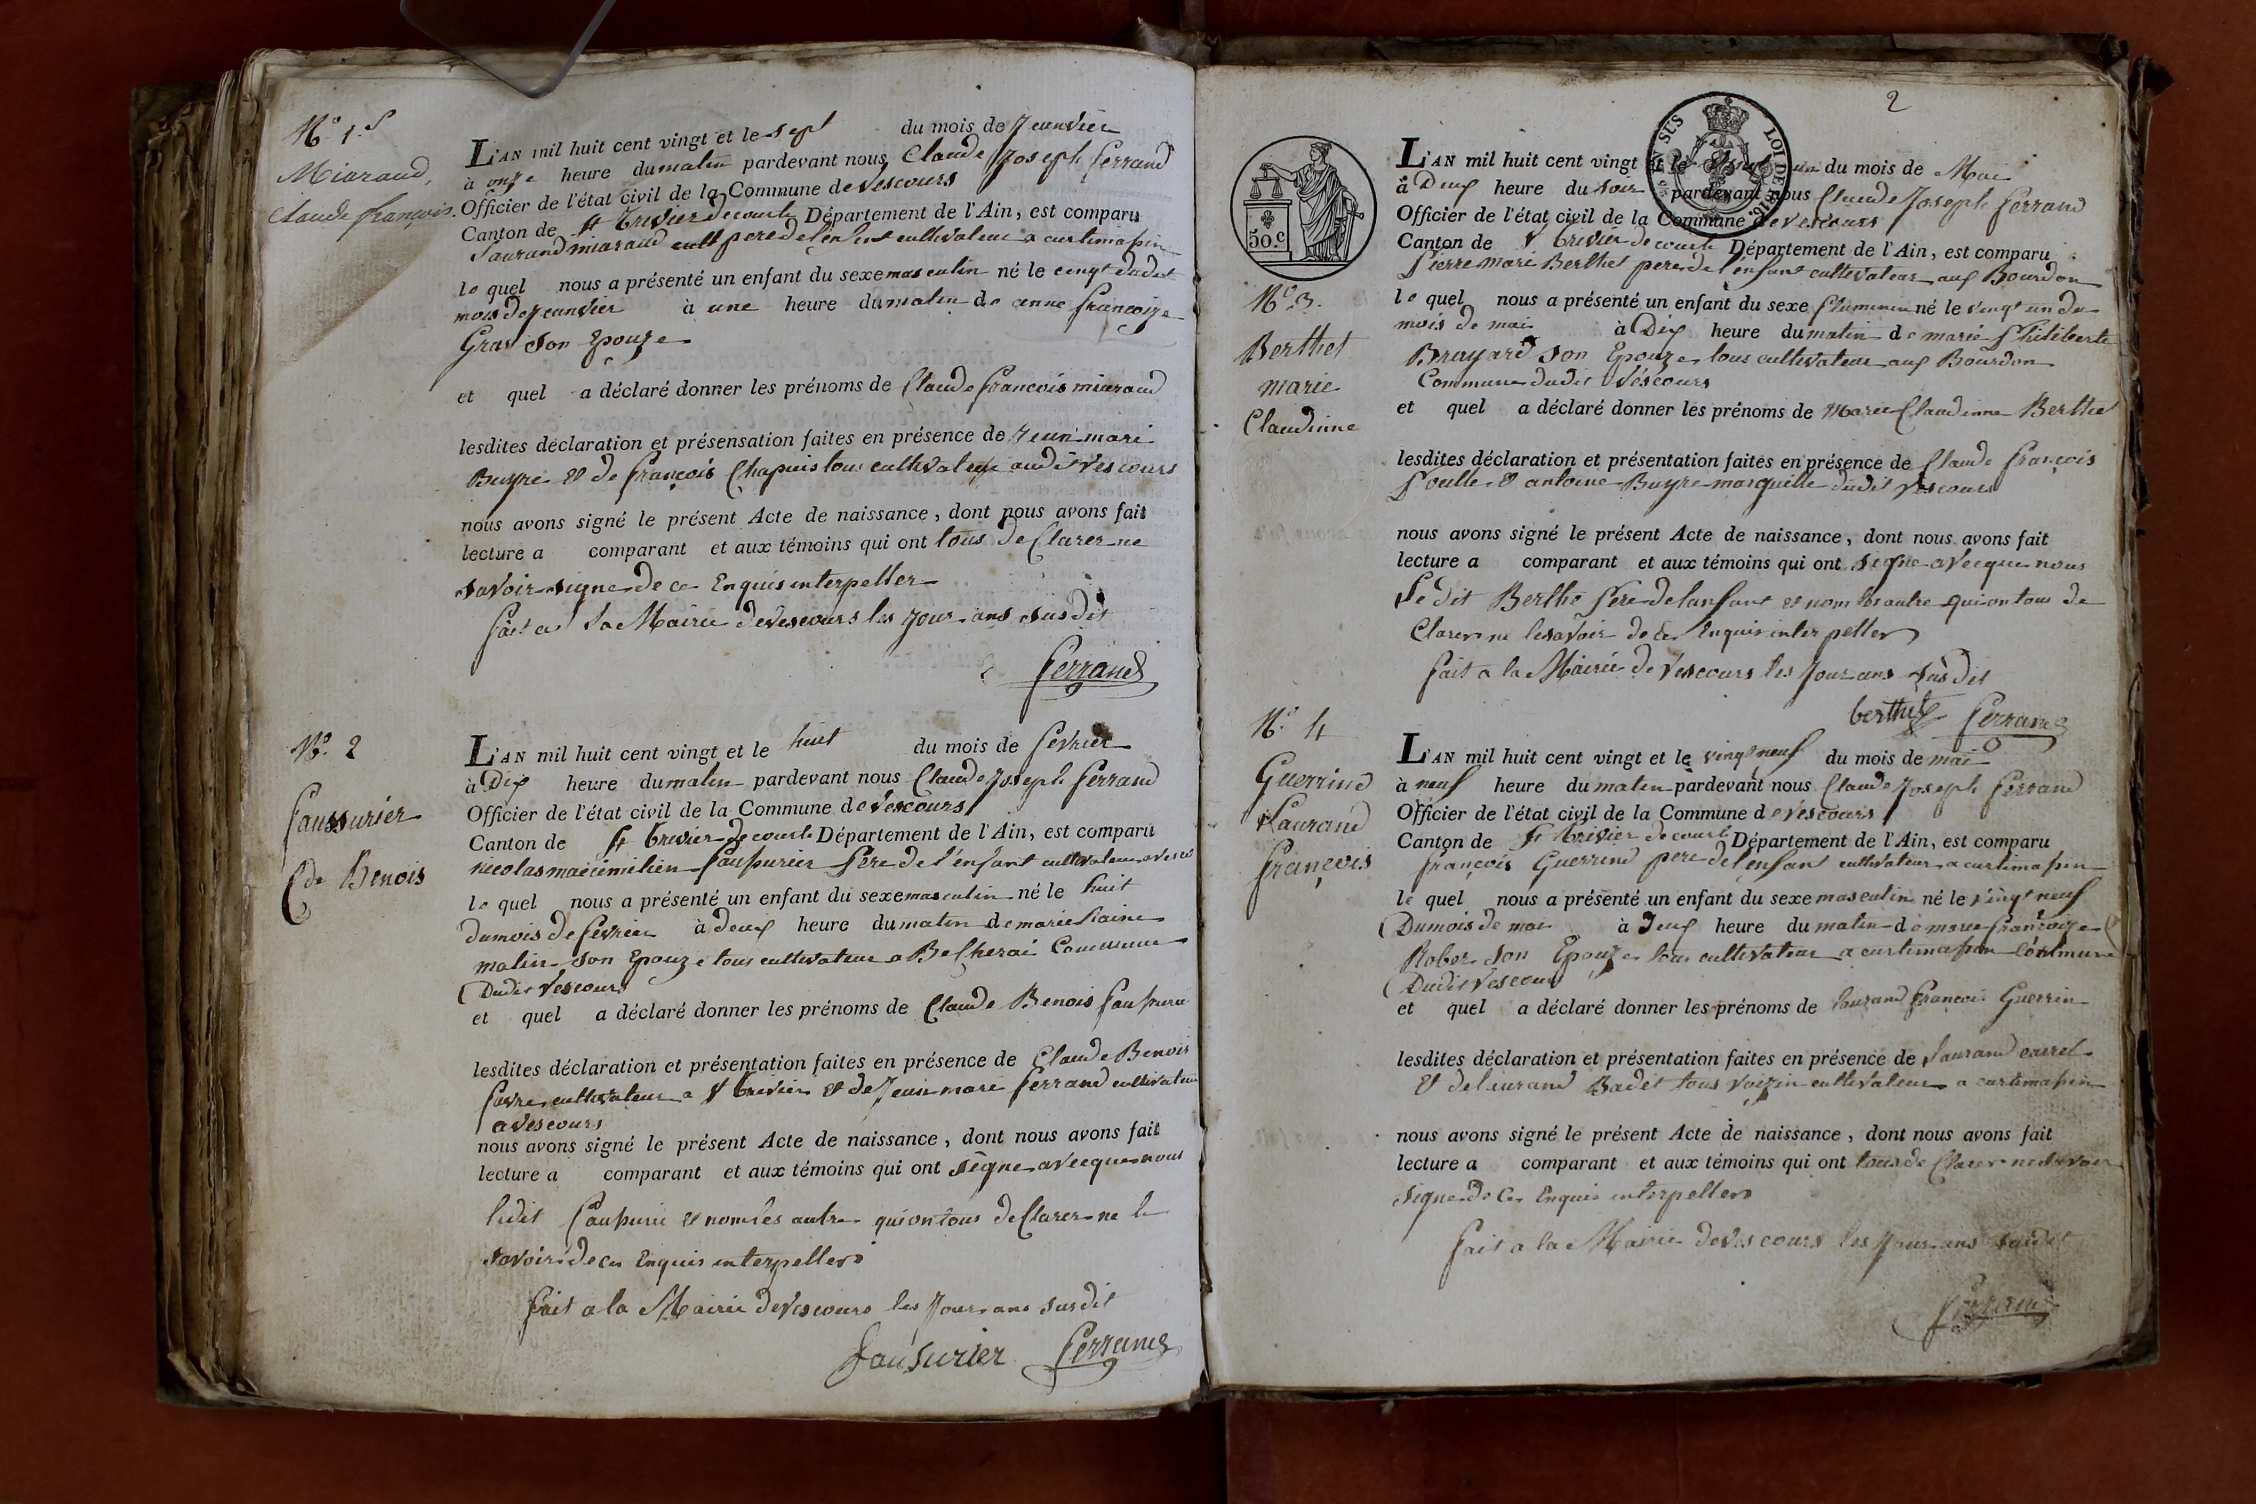 No. 1.r
Miaraud,
Claude françois.
L'AN mil huit cent vingt et le sept du mois de Jeanvier
à onze heure du matin pardevant nous Claude Joseph ferrand
Officier de l'état civil de la Commune de Vescours
Canton de St trivier de courte Département de l'Ain, est comparu
Laurand miaraud cult pere de l'enfent cultivateur a curtimassin
le quel nous a présenté un enfant du sexe masculin né le dudit
mois de Jeanvier à une heure du matin de anne françoize
Gras son Epouze
et quel a déclaré donner les prénoms de Claude françois miaraud
lesdites déclaration et présensation faites en présence de Jean mari
Buyre et de françois Chapuis tous cultivateur audit Vescours
nous avons signé le présent Acte de naissance, dont nous avons fait
lecture a comparant et aux témoins qui ont tous de Clarer ne
savoir signe de ce Enquis interpeller
fait a la Mairie de Vescours les Jour ans susdit
ferrand
No. 2
faussurier
Cde Benois
L'AN mil huit cent vingt et le huit du mois de fevrier
à Dix heure du matin pardevant nous Claude Joseph ferrand
Officier de l'état civil de la Commune de Vescours
Canton de St trivier de courte Département de l'Ain, est comparu
nicolas maecimilien faussurier Pere de l'enfant cultivateur a Vesco
le quel nous a présenté un enfant du sexe masculin né le huit
du mois de fevrier à deux heure du matin de marie
matin son Epouze tous cultivateur a Belherai Commune
Dudit Vescours
et quel a déclaré donner les prénoms de Claude Benois faussurie
lesdites déclaration et présentation faites en présence de Claude Benois
favre cultivateur a St trivier et de Jean mari ferrand cultivateur
a Vescours
nous avons signé le présent Acte de naissance, dont nous avons fait
lecture a comparant et aux témoins qui ont signe avecque nous
ledit faussurie et nom les autre qui on tous de Clarer ne le
savoir de ce Enquis interpeller
fait a la Mairie de Vescours les Jour ans susdit
fausurier ferrand
2
EN SUS
LOI DE 1816
50.c
No. 3.
Berthet
marie
Claudinne
L'AN mil huit cent vingt et le un du mois de Mai
à Deux heure du soir pardevant nous Claude Joseph ferrand
Officier de l'état civil de la Commune de Vescours
Canton de St trivier de courte Département de l'Ain, est comparu
Pierre mari Berthet pere de l'enfant cultivateur aux Bourdon
le quel nous a présenté un enfant du sexe fluminin né le vingt un du
mois de mai à Dix heure du matin de marie Philiberte
Brayard son Epouze tous cultivateur aux Bourdon
Commune dudit Vescours
et quel a déclaré donner les prénoms de Marie Claudinne Berthet
lesdites déclaration et présentation faites en présence de Claude françois
Poulle et antoine Buyre marguille dudit Vescours
nous avons signé le présent Acte de naissance, dont nous avons fait
lecture a comparant et aux témoins qui ont signe avecque nous
le dit Berthe Pere de lanfant et nom les autre qui on tous de
Clarer ne le savoir de ce Enquis interpeller
fait a la Mairie de Vescours les Jour ans susdit
berthet ferrand
No. 4
Guerrind
Laurand
françois
L'AN mil huit cent vingt et le vingt neuf du mois de mai
à neuf heure du matin pardevant nous Claude Joseph ferrand
Officier de l'état civil de la Commune de Vescours
Canton de St trivier de courte Département de l'Ain, est comparu
françois Guerrind pere de l'enfant cultivateur a curtimassin
le quel nous a présenté un enfant du sexe masculin né le vingt neuf
Du mois de mai à Deux heure du matin de marie françoize
Rober son Epouze tous cultivateur a curtimassin Commune
Dudit Vescours
et quel a déclaré donner les prénoms de laurand françois Guerrin
lesdites déclaration et présentation faites en présence de Laurand carrel
et de laurand Badet tous voizin cultivateur a curtimassin
nous avons signé le présent Acte de naissance, dont nous avons fait
lecture a comparant et aux témoins qui ont tous de Clarer ne savoir
signe de ce Enquis interpeller
fait a la Mairie de Vescours les Jour ans susdit
ferrand